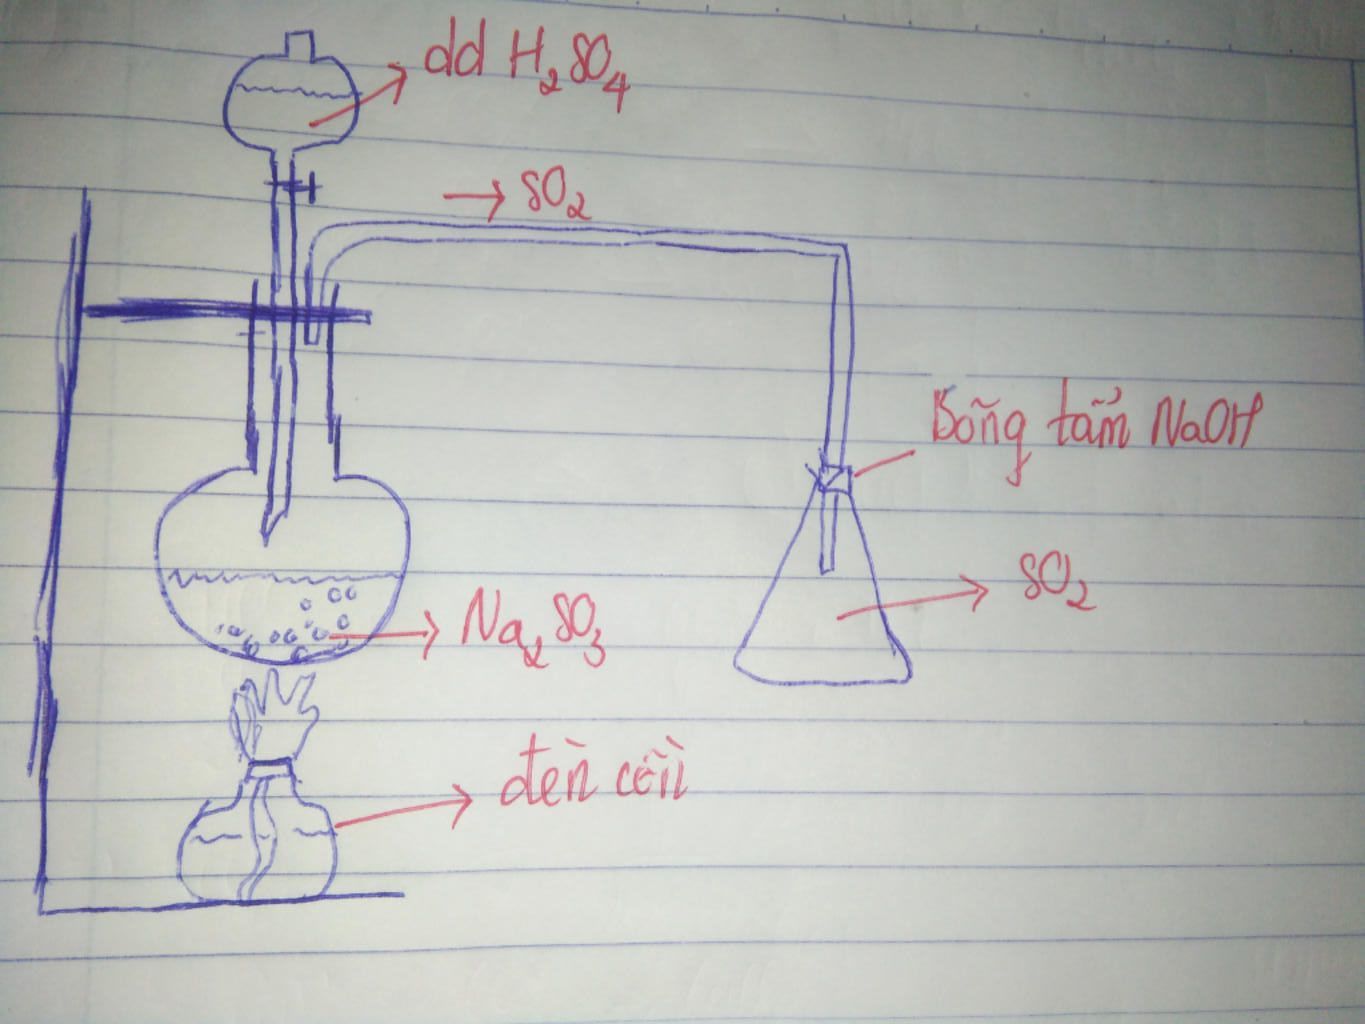 dd H₂SO₄
→ SO₂
Bông tẩm NaOH
SO₂
Na₂SO₃
đèn cồn